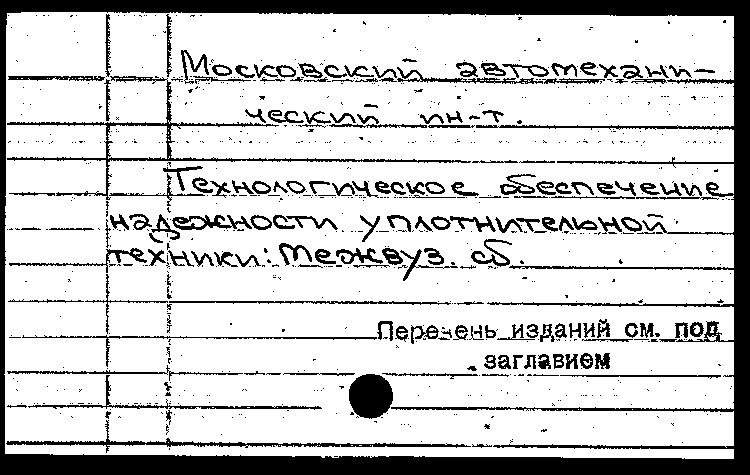 Московский автомехани-
ческий ин-т.
Технологическое обеспечение
надежности уплотнительной
техники: Межвуз. сб.
Перечень изданий см. под
заглавием